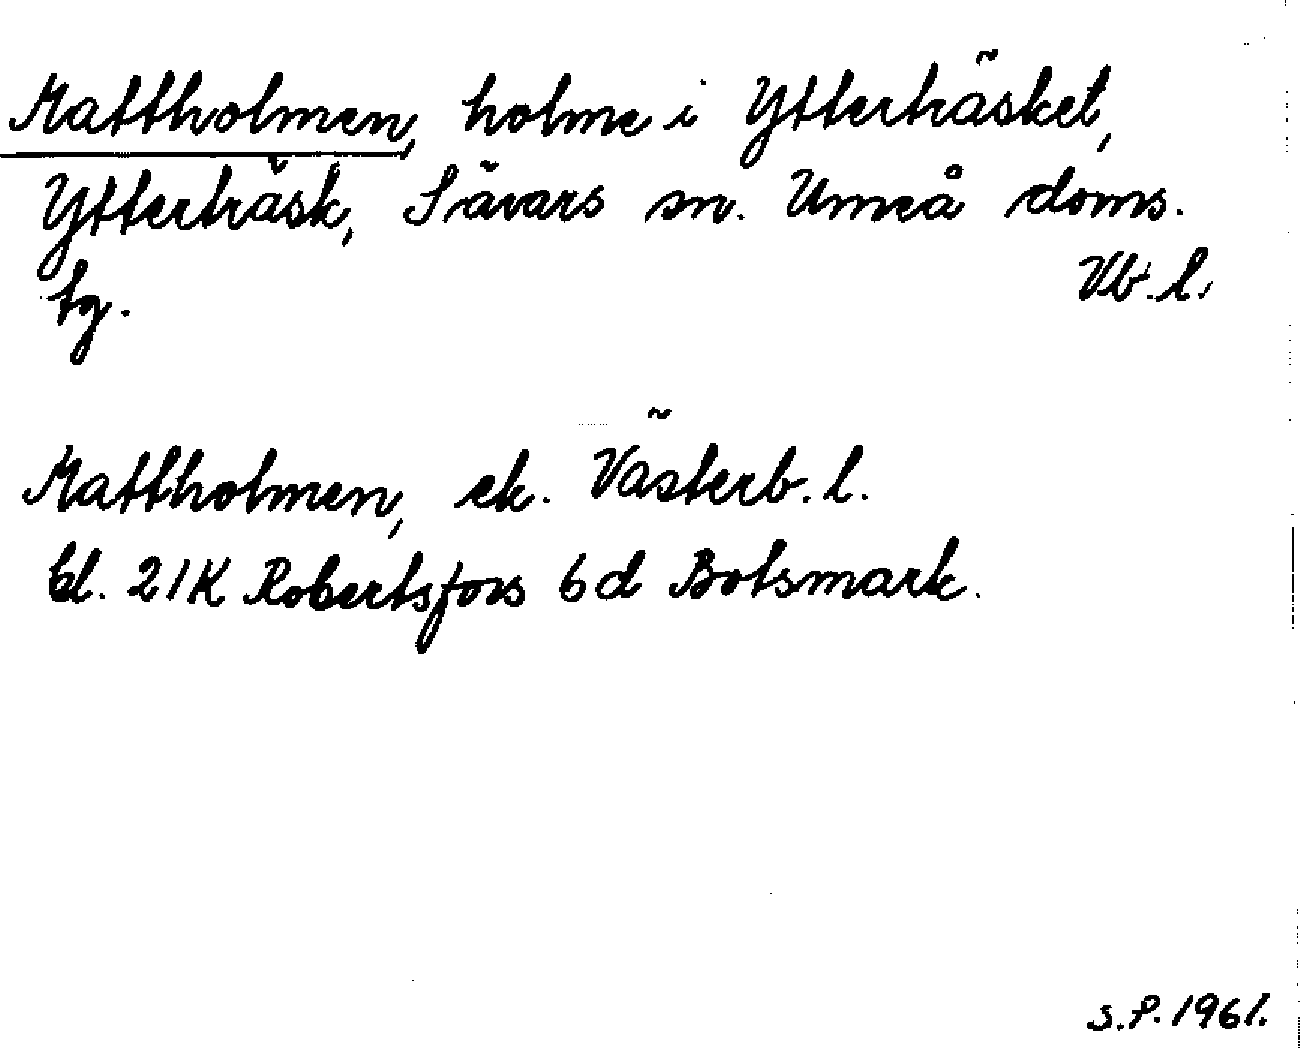 Mattholmen, holme i Ytterträsket,
Ytterträsk, Sävars sn. Umeå doms.
tg. Vb. l.
Mattholmen, ek. Västerb. l.
bl. 21K Robertsfors 6d Botsmark.
S.P. 1961.